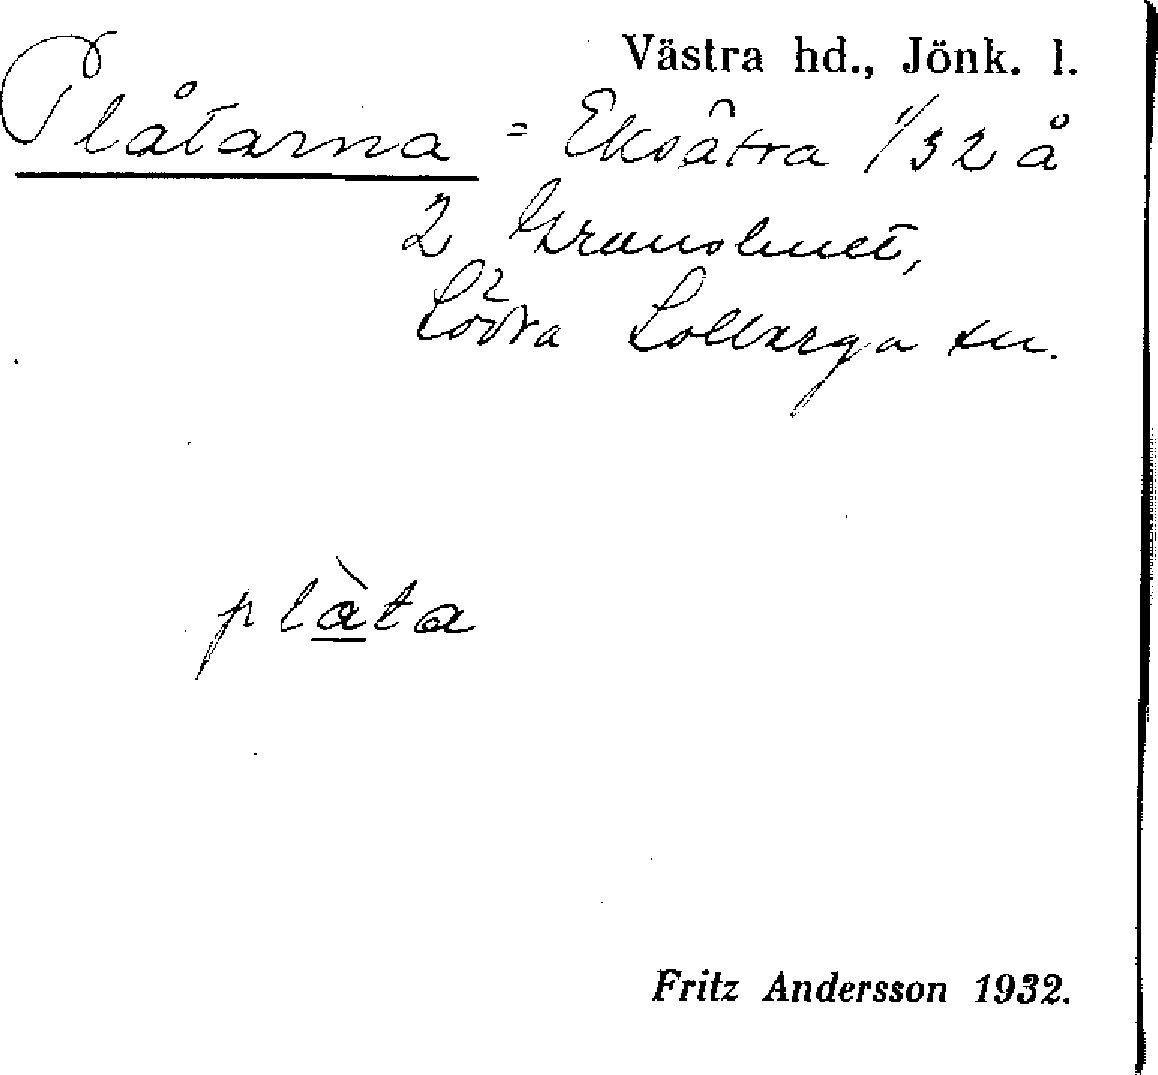 Västra hd., Jönk. l.
Plåtarna = Eksätra 1/32 å
2 Granshult,
Södra Solberga sn.
plàta
Fritz Andersson 1932.